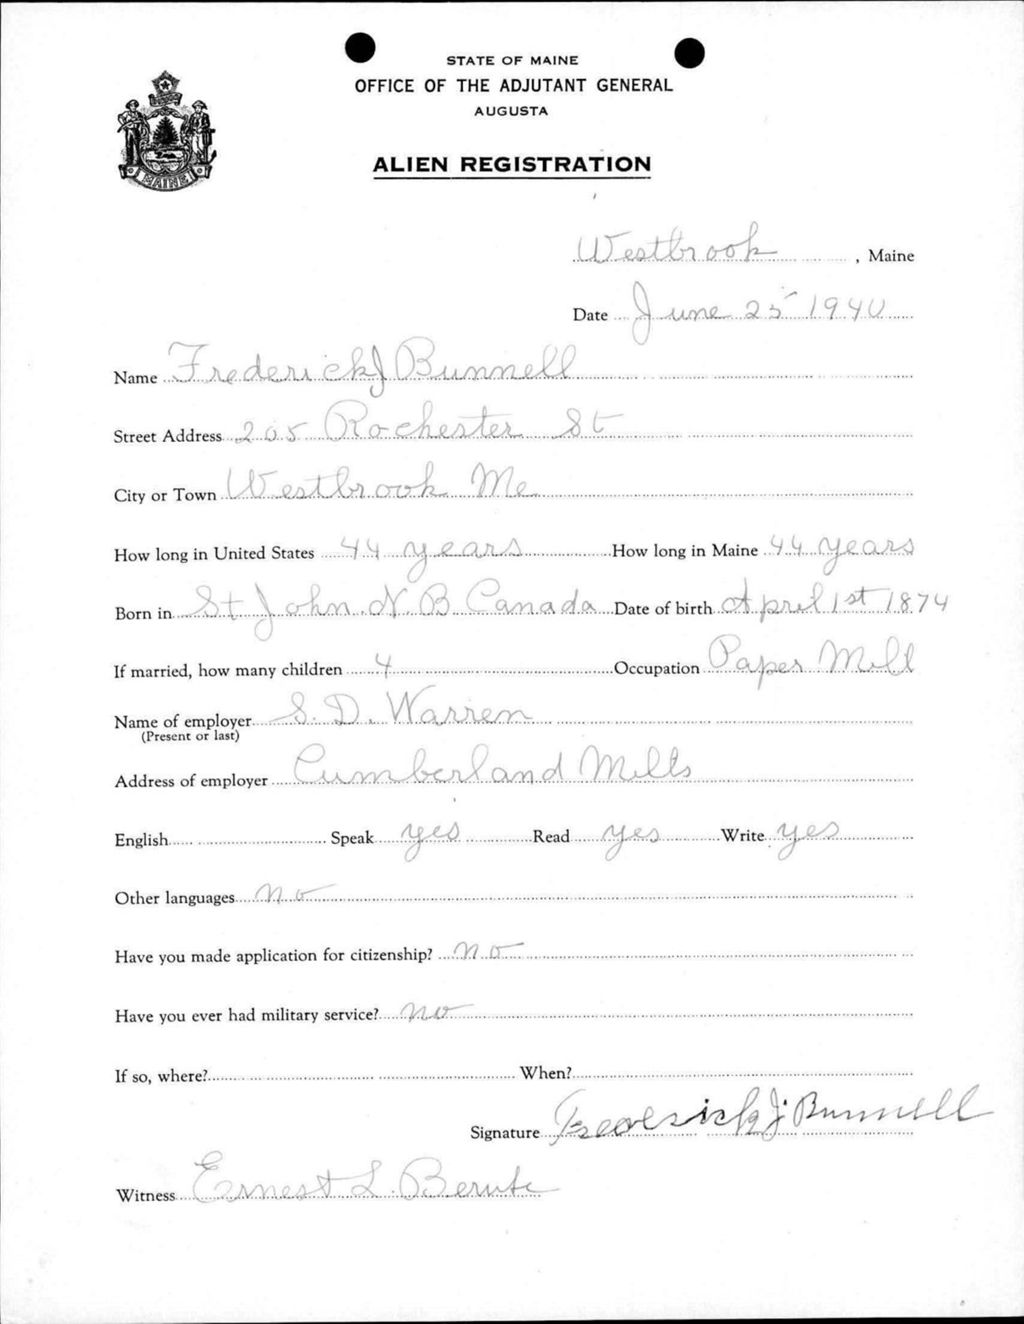 STATE OF MAINE
OFFICE OF THE ADJUTANT GENERAL
AUGUSTA
MAINE
ALIEN REGISTRATION
Westbrook, Maine
Date June 25 1940
Name Frederick J Bunnell
Street Address 205 Rochester St
City or Town Westbrook Me
How long in United States 44 years How long in Maine 44 years
Born in St John N. B. Canada Date of birth April 1st 1874
If married, how many children 4 Occupation Paper Mill
Name of employer S. D. Warren
(Present or last)
Address of employer Cumberland Mills
English Speak yes Read yes Write yes
Other languages no
Have you made application for citizenship? no
Have you ever had military service? no
If so, where? When?
Signature Frederick J. Bunnell
Witness Ernest L